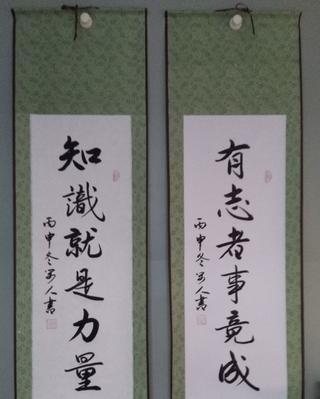 有志者事竟成
丙申冬人書
知識就是力量
丙申冬人書